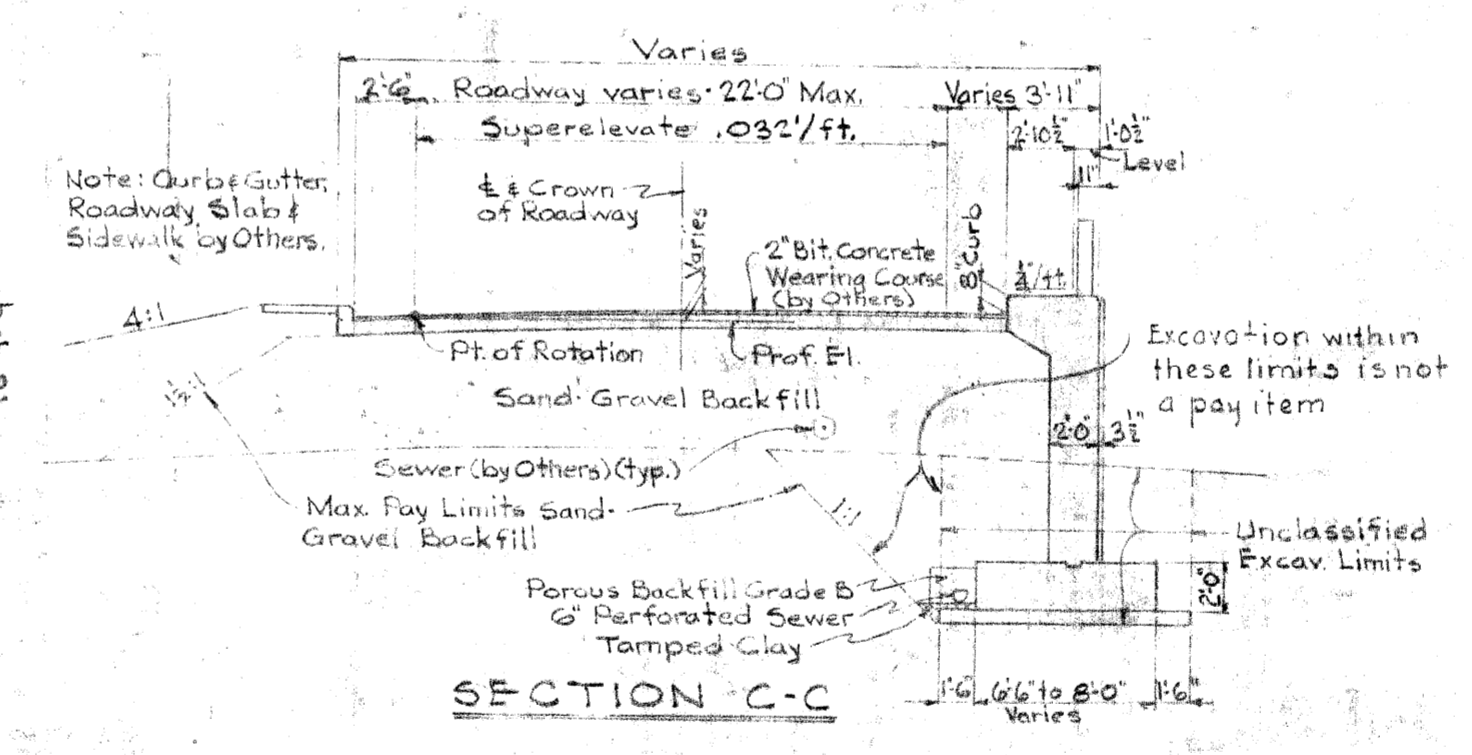 Varies
2'-6" Roadway varies - 22'-0" Max. Varies 3'-11"
Superelevate .032'/ft.
2'-10½" 1'-0½"
Level
11"
Note: Curb & Gutter,
Roadway Slab &
Sidewalk by Others.
℄ & Crown
of Roadway
Varies
2" Bit. Concrete
Wearing Course
(by Others)
8" Curb
¼"/ft.
4:1
Pt. of Rotation
Prof. El.
Excavation within
these limits is not
a pay item
1½:1
Sand-Gravel Backfill
2'-0" 3½"
Sewer (by Others) (typ.)
Max. Pay Limits Sand-
Gravel Backfill
1:1
Unclassified
Excav. Limits
Porous Backfill Grade B
6" Perforated Sewer
Tamped Clay
2'-0"
1'-6" 6'-6" to 8'-0" 1'-6"
Varies
SECTION C-C